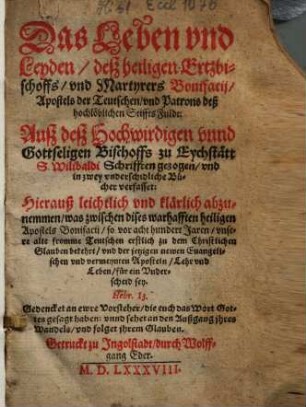 Das Leben vnd
Leyden / deß heiligen Ertzbi-
schoffs / vnd Martyrers Bonifatij /
Apostels der Teutschen / vnd Patrons deß
hochlöblichen Stiffts Fulde:
Auß deß Hochwirdigen vnnd
Gottseligen Bischoffs zu Eychstätt
S. Wilibaldi Schrifften gezogen / vnd
in zwey vnderschidliche Bü-
cher verfasset:
Hierauß leichtlich vnd klärlich abzu-
nemmen / was zwischen dises warhafften heiligen
Apostels Bonifacij / so vor acht hundert Jaren / vnse-
re alte fromme Teutschen erstlich zu dem Christlichen
Glauben bekehrt / vnd der jetzigen newen Euangeli-
schen vnd vermeynten Aposteln / Lehr vnd
Leben / für ein Vnder-
scheid sey.
Hebr. 13.
Gedencket an ewre Vorsteher / die euch das Wort Got-
tes gesagt haben: vnnd sehet an den Außgang jhres
Wandels / vnd folget jhrem Glauben.
Getruckt zu Ingolstadt / durch Wolff-
gang Eder.
M. D. LXXXVIII.